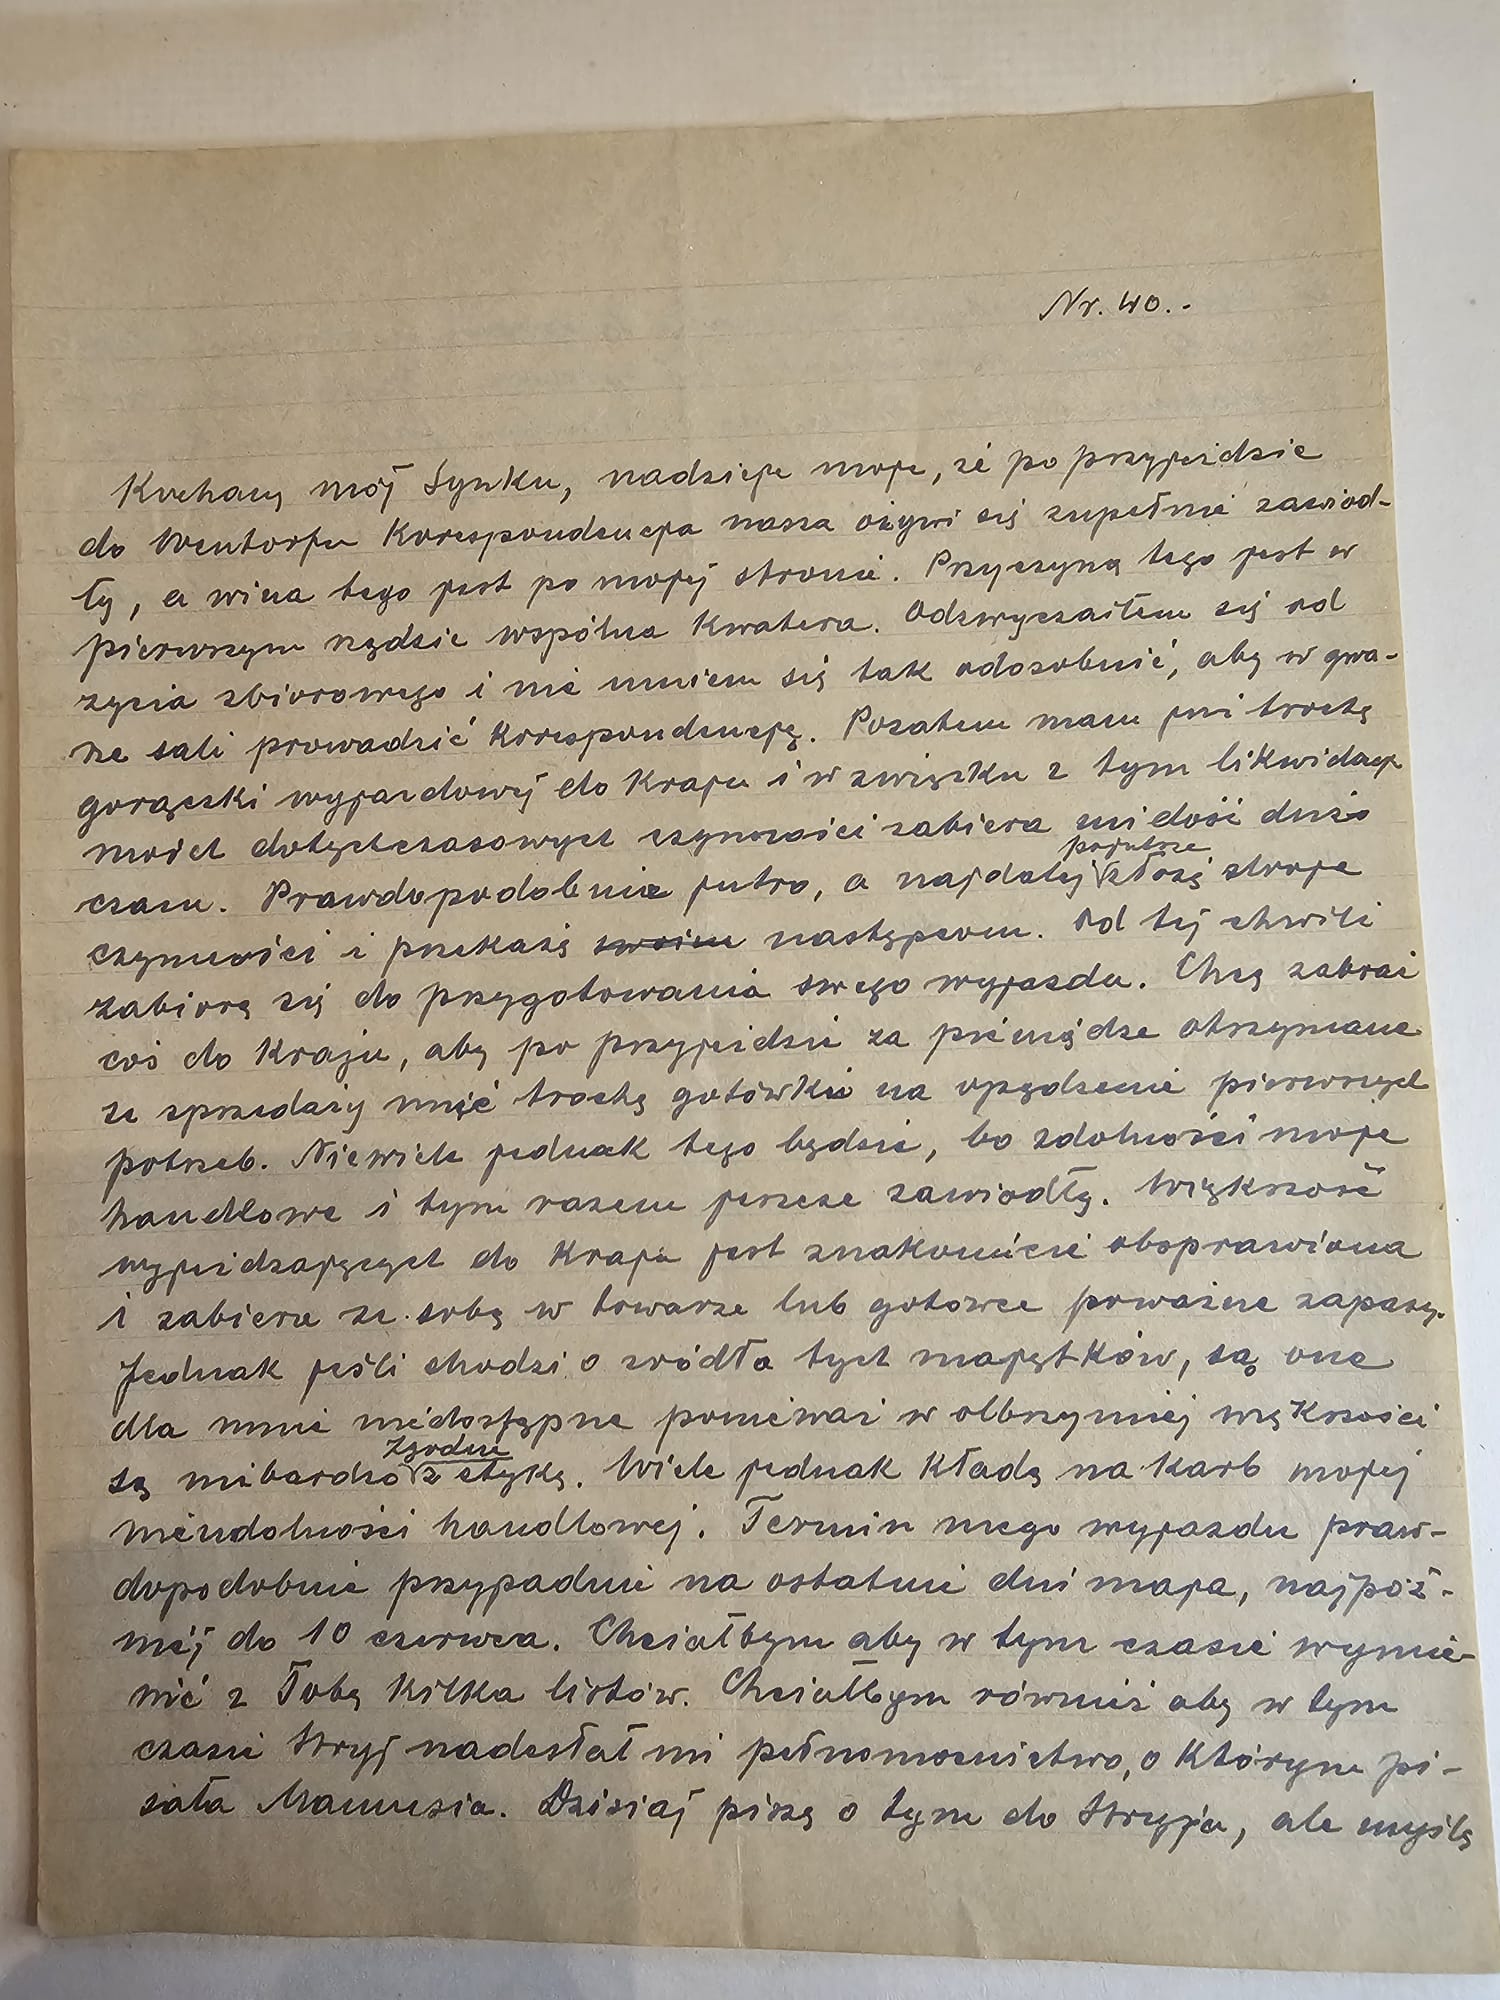 Nr. 40.-
Kochany mój Synku, nadzieje moje, że po przyjeździe
do Wentorfu korespondencja nasza ożywi się zupełnie zawiod-
ły, a wina tego jest po mojej stronie. Przyczyną tego jest w
pierwszym rzędzie wspólna kwatera. Odzwyczaiłem się od
życia zbiorowego i nie umiem się tak odosobnić, aby w gwa-
rze sali prowadzić korespondencję. Pozatem mam już trochę
gorączki wyjazdowej do Kraju i w związku z tym likwidacja
moich dotychczasowych czynności zabiera mi dość dużo
czasu. Prawdopodobnie jutro, a najdalej pojutrze złożę swoje
czynności i przekażę swoim następcom. Od tej chwili
zabiorę się do przygotowania swego wyjazdu. Chcę zabrać
coś do Kraju, aby po przyjeździe za pieniądze otrzymane
ze sprzedaży mieć trochę gotówki na opędzenie pierwszych
potrzeb. Niewiele jednak tego będzie, bo zdolności moje
handlowe i tym razem jeszcze zawiodły. Większość
wyjeżdżających do Kraju jest znakomicie obsprawiona
i zabiera ze sobą w towarze lub gotówce poważne zapasy.
Jednak jeśli chodzi o źródła tych majątków, są one
dla mnie niedostępne ponieważ w olbrzymiej większości
są niebardzo zgodne z etyką. Wiele jednak kładę na karb mojej
nieudolności handlowej. Termin mego wyjazdu praw-
dopodobnie przypadnie na ostatnie dni maja, najpóź-
niej do 10 czerwca. Chciałbym aby w tym czasie wymie-
nić z Tobą kilka listów. Chciałbym również aby w tym
czasie Stryj nadesłał mi pełnomocnictwo, o którym pi-
sała Mamusia. Dzisiaj piszę o tym do Stryja, ale myślę